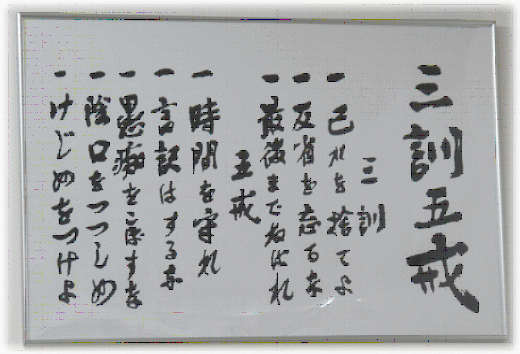 三訓五戒
三訓
一 己れを捨てよ
一 反省を忘るな
一 最後までねばれ
五戒
一 時間を守れ
一 言訳はするな
一 愚痴をこぼすな
一 陰口をつつしめ
一 けじめをつけよ